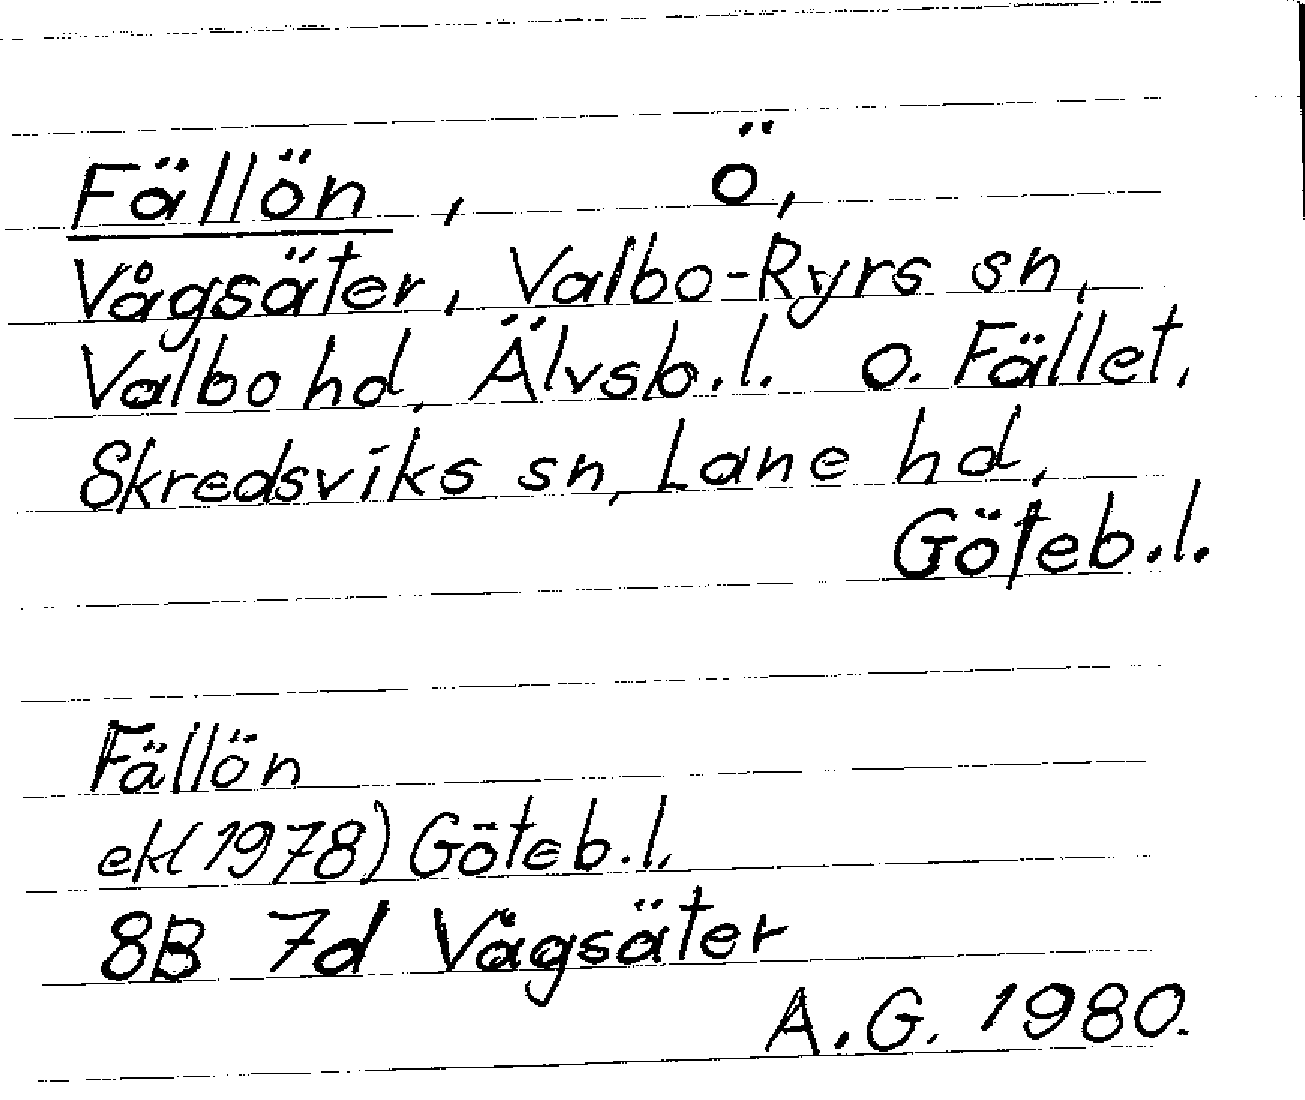 Fällön, ö,
Vågsäter, Valbo-Ryrs sn,
Valbo hd, Älvsb.l. o. Fället,
Skredsviks sn, Lane hd,
Göteb.l.
Fällön
ek(1978) Göteb.l.
8B 7d Vågsäter
A.G. 1980.